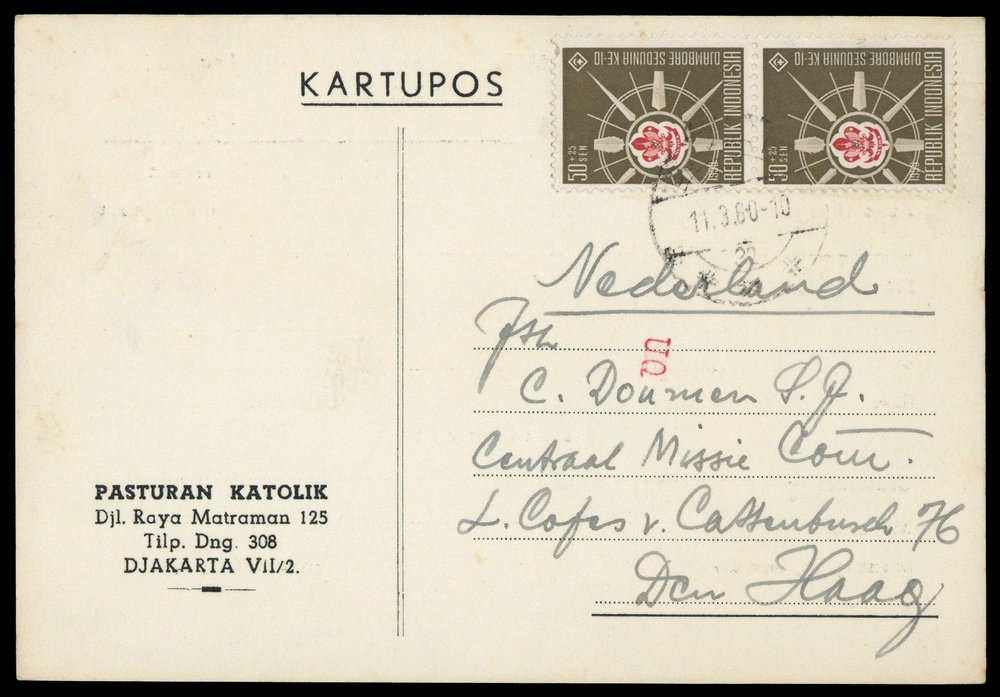 KARTUPOS
DJAMBORE SEDUNIA KE-10
REPUBLIK INDONESIA
50+25 SEN
1959
DJAMBORE SEDUNIA KE-10
REPUBLIK INDONESIA
50+25 SEN
1959
11.3.60-10
Nederland
C. Doumen S.J.
Centraal Missie Com.
L. Copes v. Cattenburch 76
Den Haag
PASTURAN KATOLIK
Djl. Raya Matraman 125
Tilp. Dng. 308
DJAKARTA VII/2.